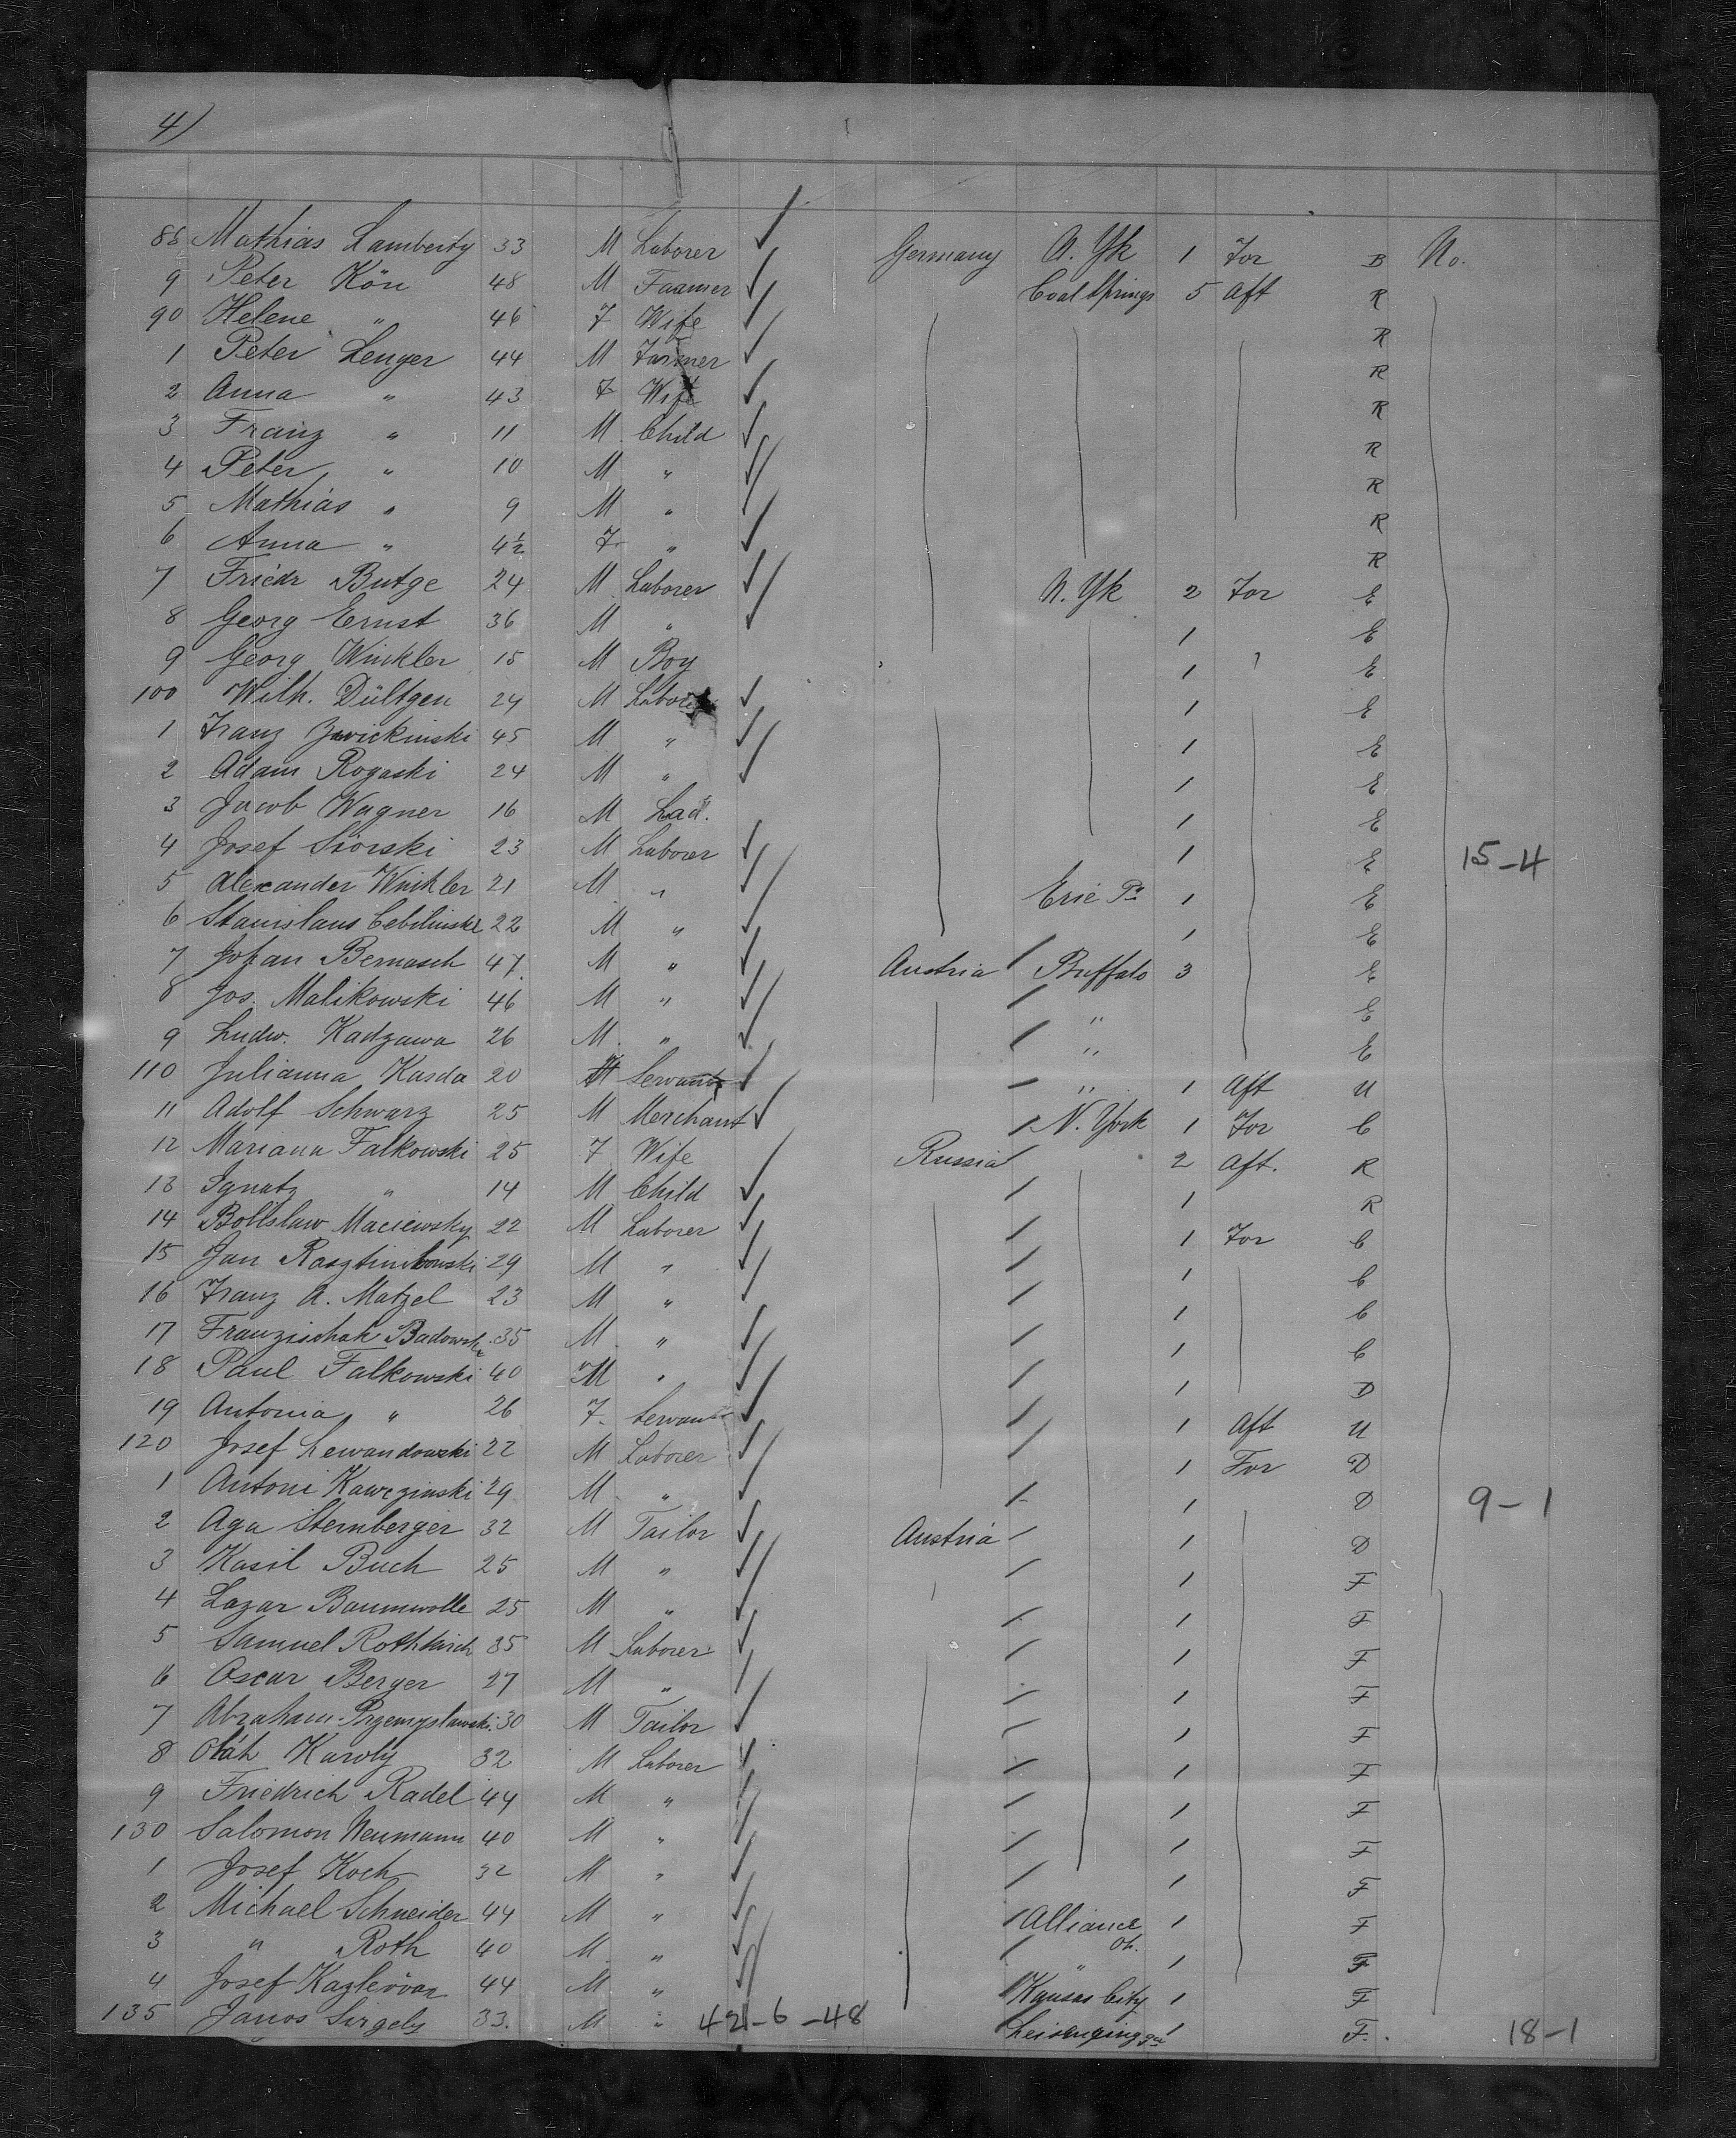 4)
88 Mathias Lamberty 33 M Laborer ✓ Germany N. Yk 1 For B No.
9 Peter Kön 48 M Faamer ✓ Coal Springs 5 Aft R
90 Helene " 46 F Wife ✓ R
1 Peter Lenger 44 M Farmer ✓ R
2 Anna " 43 F Wife ✓ R
3 Franz " 11 M Child ✓ R
4 Peter " 10 M " ✓ R
5 Mathias " 9 M " ✓ R
6 Anna " 4½ F " ✓ R
7 Friedr Butge 24 M Laborer ✓ N. Yk 2 For E
8 Georg Ernst 36 M " ✓ 1 E
9 Georg Winkler 15 M Boy 1 E
100 Wilh. Dültgen 24 M Laborer ✓ 1 E
1 Franz Zwickinski 45 M " ✓ 1 E
2 Adam Rogaski 24 M " ✓ 1 E
3 Jacob Wagner 16 M Lad. 1 E
4 Josef Siorski 23 M Laborer ✓ 1 E 15-4
5 Alexander Winkler 21 M " ✓ Erie Pa 1 E
6 Stanislaus Cebilinski 22 M " ✓ 1 E
7 Johan Bernasch 47 M " ✓ Austria / Buffalo 3 E
8 Jos. Malikowski 46 M " ✓ / " E
9 Ludw. Kadzawa 26 M " ✓ / " E
110 Julianna Kasda 20 F Servant ✓ / " 1 Aft U
11 Adolf Schwarz 25 M Merchant ✓ / N. York 1 For C
12 Mariana Falkowski 25 F Wife Russia / 2 Aft. R
13 Ignatz " 14 M Child ✓ / 1 R
14 Bolislaw Maciewsky 22 M Laborer ✓ / 1 For C
15 Jan Rasztimbowski 29 M " ✓ / 1 C
16 Franz A. Matzel 23 M " ✓ / 1 C
17 Franzischak Badowski 35 M " ✓ / 1 C
18 Paul Falkowski 40 M " ✓ / 1 D
19 Antonia " 26 F Servant ✓ / 1 Aft U
120 Josef Lewandowski 22 M Laborer ✓ / 1 For D
1 Antoni Kawczinski 29 M " ✓ / 1 D 9-1
2 Aga Sternberger 32 M Tailor ✓ Austria / 1 D
3 Kasil Buch 25 M " ✓ / 1 F
4 Lazar Baumwolle 25 M " ✓ / 1 F
5 Samuel Rothkirch 35 M Laborer ✓ / 1 F
6 Oscar Berger 27 M " ✓ / 1 F
7 Abraham Przemyslawski 30 M Tailor ✓ / 1 F
8 Oláh Karoly 32 M Laborer ✓ / 1 F
9 Friedrich Radel 44 M " ✓ / 1 F
130 Salomon Neumann 40 M " ✓ / 1 F
1 Josef Koch 32 M " ✓ / 1 F
2 Michael Schneider 44 M " ✓ / Alliance Oh. 1 F
3 " Roth 40 M " ✓ / " 1 F
4 Josef 44 M " ✓ / Kansas City 1 F
135 Janos 33. M " 421-6-48 1 F. 18-1